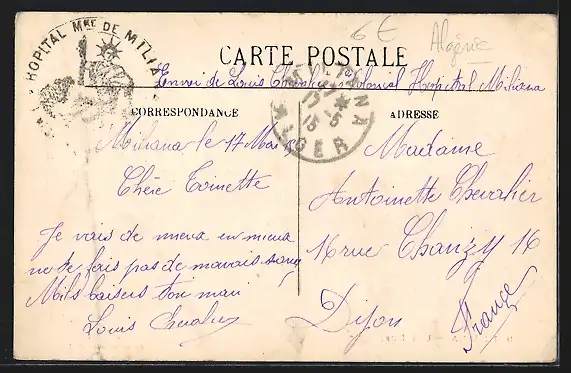 HOPITAL MRE DE MILIA
6 €
Algérie
CARTE POSTALE
Envoi de Louis Chevalier Colonial Hospital Miliana
CORRESPONDANCE
ADRESSE
17 -5
15
ALGER
Miliana le 17 Mai 15
Chère Toinette
Je vais de mieux en mieux
ne te fais pas de mauvais sang
Mils baisers ton mari
Louis Chevalier
Madame
Antoinette Chevalier
16 rue Chanzy 16
Dijon
France